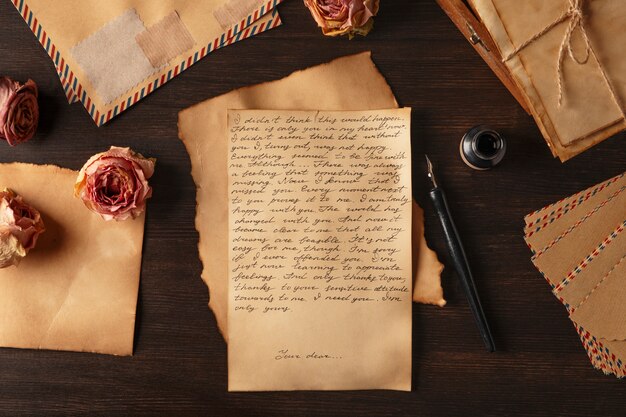 I didn't think this would happen.
There is only you in my heart now.
I didn't even think that without
you I, turns out, was not happy.
Everything seemed to be fine with
me. Although ... There was always
a feeling that something was
missing. Now I know that I
missed you. Every moment next
to you proves it to me. I am truly
happy with you. The world has
changed with you. And now it
became clear to me that all my
dreams are feasible. It's not
easy for me, though. I'm sorry
if I ever offended you. I'm
just now learning to appreciate
feelings. And only thanks to you,
thanks to your sensitive attitude
towards to me. I need you. I'm
only yours
Your dear...